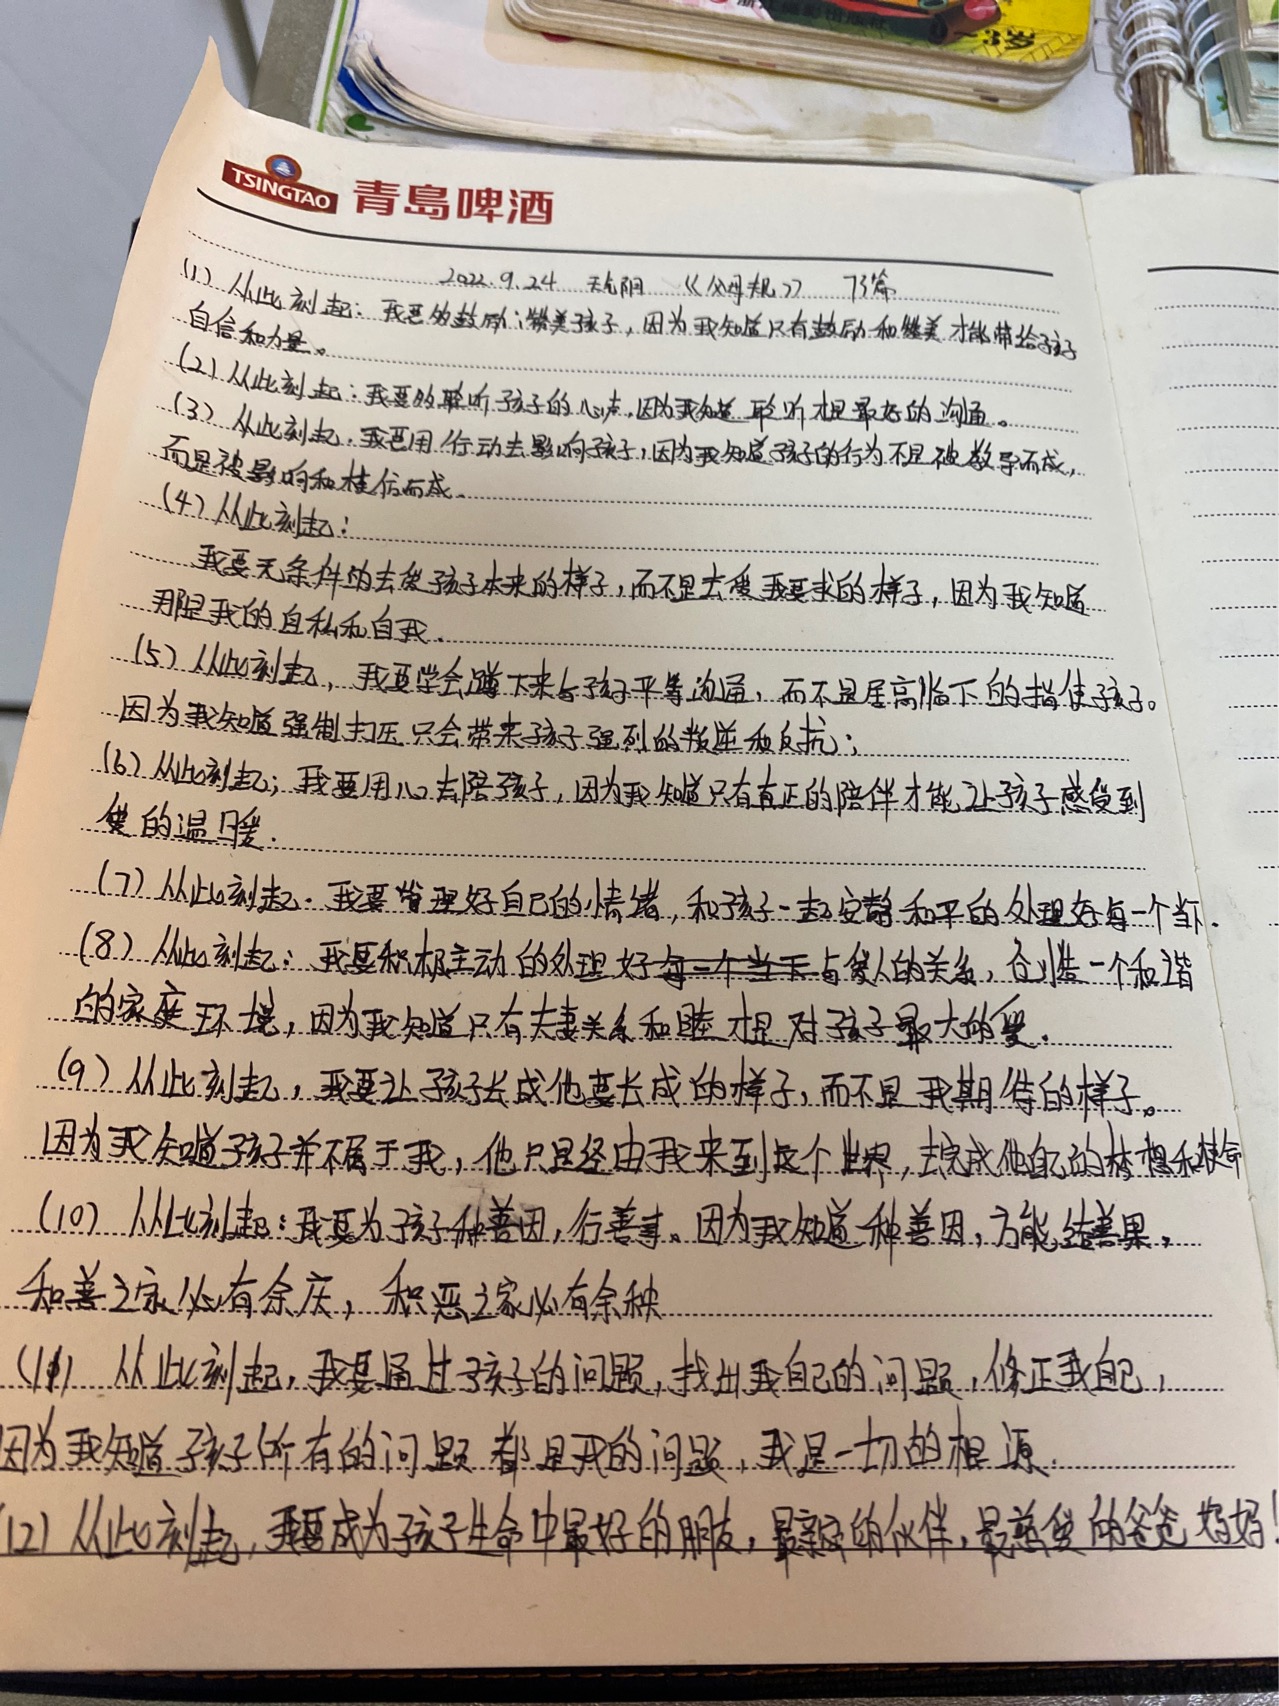 ~3岁
TSINGTAO 青岛啤酒
2022.9.24 《父母规》
(1) 从此刻起：我要多鼓励；赞美孩子，因为我知道只有鼓励和赞美才能带给孩子
自信和力量。
(2) 从此刻起：我要多聆听孩子的心声，因为我知道聆听才是最好的沟通。
(3) 从此刻起．我要用行动去影响孩子，因为我知道孩子的行为不是被教导而成，
而是被影响和模仿而成．
(4) 从此刻起：
我要无条件的去爱孩子本来的样子，而不是去爱我要求的样子，因为我知道
那是我的自私和自我．
(5) 从此刻起，我要学会蹲下来与孩子平等沟通，而不是居高临下的指使孩子。
因为我知道强制打压只会带来孩子强烈的叛逆和反抗；
(6) 从此刻起；我要用心去陪孩子，因为我知道只有真正的陪伴才能让孩子感受到
爱的温暖．
(7) 从此刻起．我要管理好自己的情绪，和孩子一起安静和平的处理好每一个当下．
(8) 从此刻起：我要积极主动的处理好每一个当下与爱人的关系，创造一个和谐
的家庭环境，因为我知道只有夫妻关系和睦才是对孩子最大的爱．
(9) 从此刻起，我要让孩子长成他要长成的样子，而不是我期待的样子。
因为我知道孩子并不属于我，他只是经由我来到这个世界，去完成他自己的梦想和使命
(10) 从此刻起：我要为孩子种善因，行善事。因为我知道种善因，方能结善果，
和善之家必有余庆，积恶之家必有余秧
(11) 从此刻起，我要通过孩子的问题，找出我自己的问题，修正我自己，
因为我知道孩子所有的问题都是我的问题，我是一切的根源．
(12) 从此刻起，我要成为孩子生命中最好的朋友，最亲密的伙伴，最慈爱的爸爸妈妈！